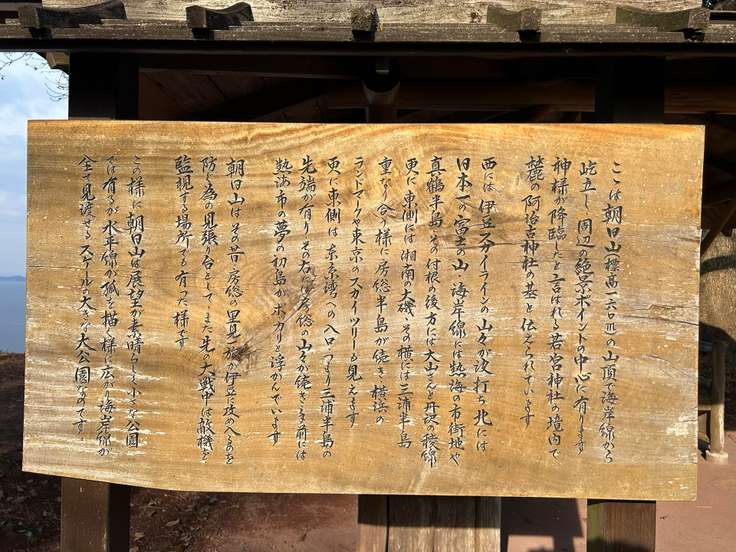 ここは朝日山(標高一六〇m)の山頂で海岸線から
屹立し、周辺の絶景ポイントの中心に有ります
神様が降臨したと言はれる若宮神社の境内で
麓の阿治古神社の基と伝えられています
西には伊豆スカイラインの山々が波打ち、北には
日本一の富士の山、海岸線には熱海の市街地や
真鶴半島、その付根の後方には大山さんと丹沢の稜線
更に東側には湘南の大磯、その横には三浦半島
重なり合う様に房総半島が続き、横浜の
ランドマークや東京のスカイツリーも見えます
更に東側は東京湾への入口つまり三浦半島の
先端が有り、その右には房総の山々が続きその前には
熱海市の夢の初島がポッカリと浮かんでいます
朝日山はその昔、房総の里見一族が伊豆に攻め入るのを
防ぐ為の見張り台として、また先の大戦中は敵機を
監視する場所でも有った様です
この様に朝日山は展望が素晴らしく小さな公園
では有るが水平線が弧を描く様に広がり海岸線が
全て見渡せるスケールの大きな大公園なのです。